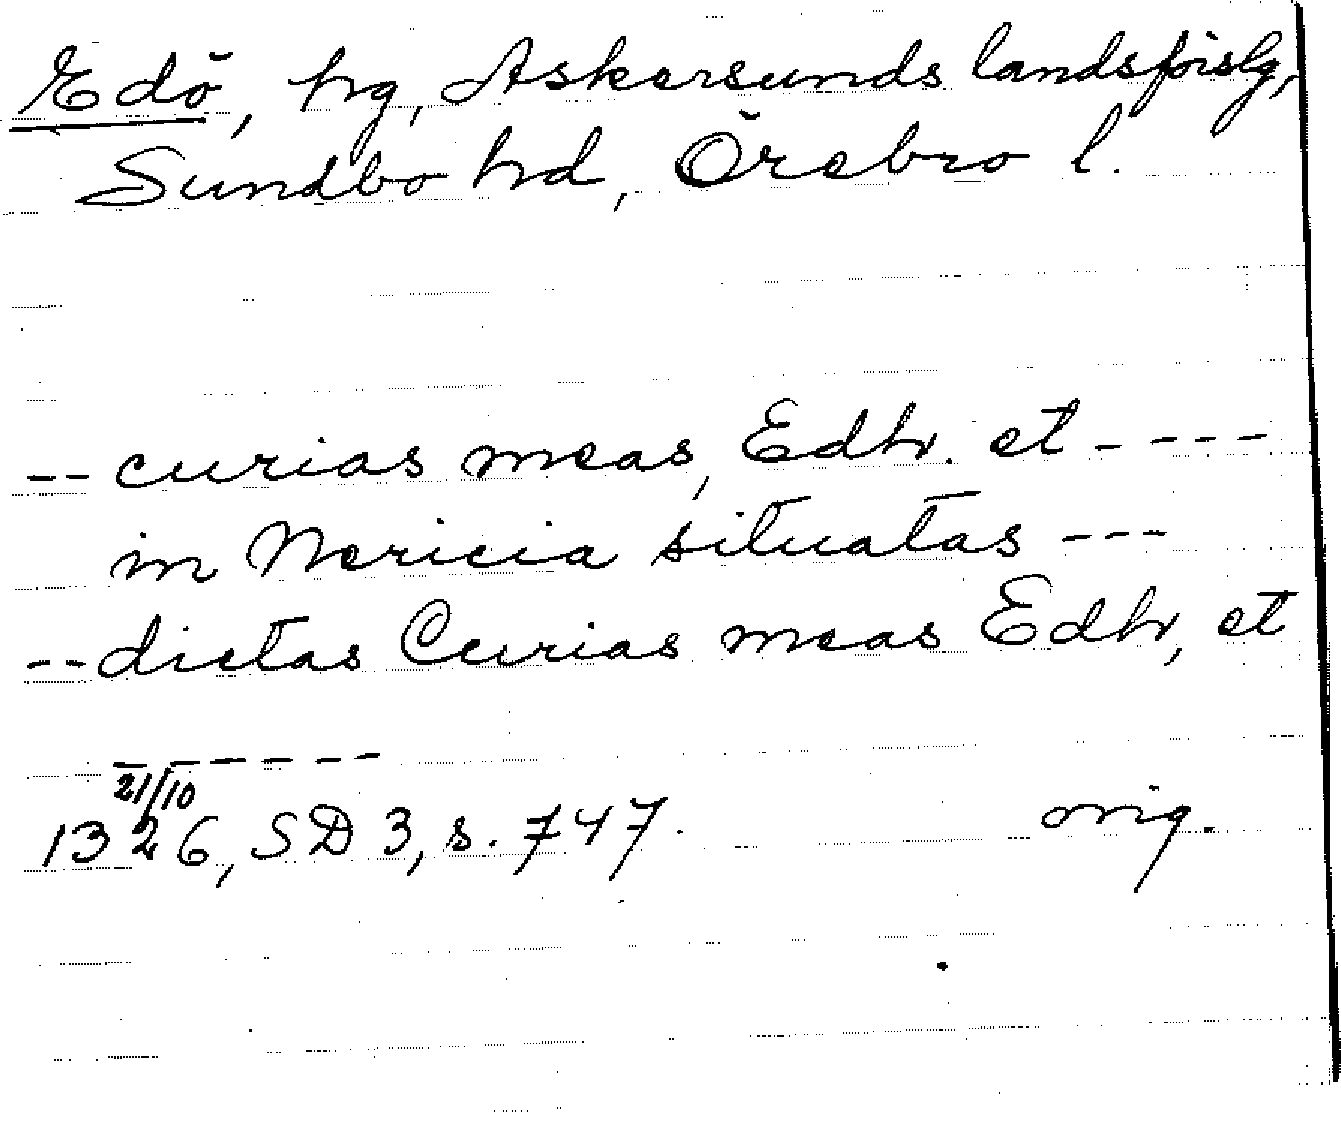 Edö, hg, Askersunds landsförslg,
Sundbo hd, Örebro l.
-- curias meas, Edh. et - - - -
in Nericia situatas - - -
-- dictas Curias meas Edh, et
- - - - - -
21/10
1326, SD 3, s. 747. orig.